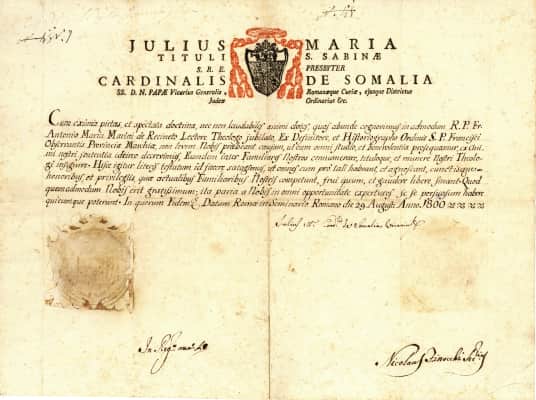 JULIUS MARIA
TITULI S. SABINÆ
S. R. E. PRESBYTER
CARDINALIS DE SOMALIA
SS. D. N. PAPÆ Vicarius Generalis, Romanæque Curiæ, ejusque Districtus
Judex Ordinarius &c.
Cum eximia pietas, et spectata doctrina, nec non laudabiles animi dotes, quas abunde cognovimus in admodum R. P. Fr.
Antonio Maria Marini de Recineto Lectore Theologo jubilato, Ex Definitore, et Historiographo Ordinis S. P. Francisci
Observantis Provinciæ Marchiæ, non levem Nobis præbeant causam, ut eum omni studio, et benevolentia prosequamur, ex
nostri sententia idcirco decrevimus, Eumdem inter Familiares Nostros connumerare, tituloque, et munere nostri Theologi
insignire. Hisce igitur id facere satagimus, ut omnes eum pro tali habeant, et agnoscant, cunctisque
honoribus, et privilegiis, quæ actualibus Familiaribus Nostris competunt, frui quoque, et gaudere libere sinant. Quod
quemadmodum Nobis erit gratissimum; ita paria a Nobis in omni opportunitate experturos se se persuasum habeant
quicumque poterunt. In quorum Fidem &c. Datum Romæ in Seminario Romano die 29 Augusti Anno 1800
Julius M. Card. de Somalia
In
Nicolaus